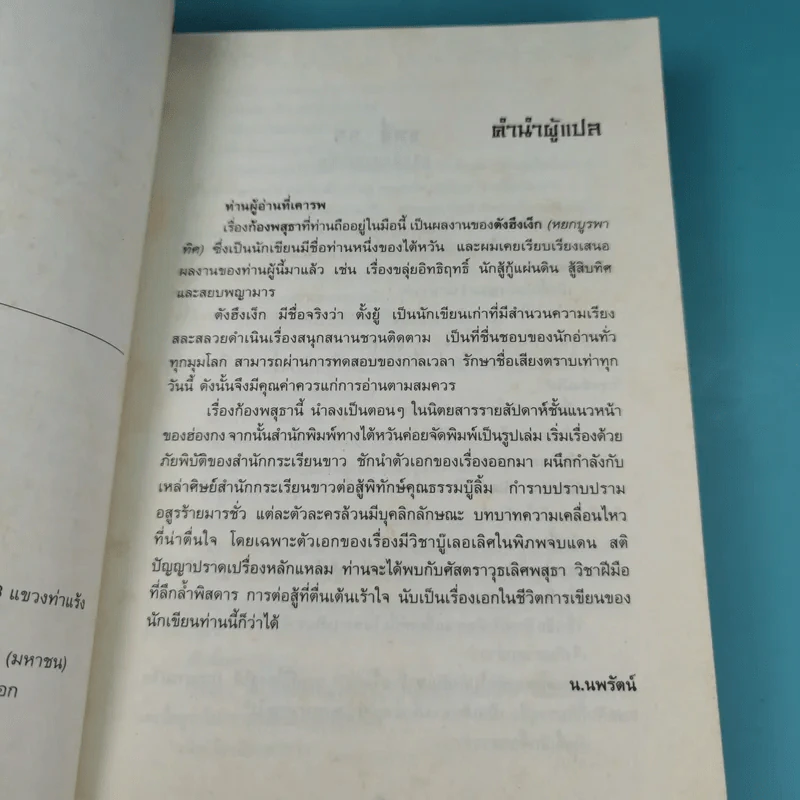 คำนำผู้แปล
ท่านผู้อ่านที่เคารพ
เรื่องก้องพสุธาที่ท่านถืออยู่ในมือนี้ เป็นผลงานของตังฮึงเง็ก (หยกบูรพา
ทิศ) ซึ่งเป็นนักเขียนมีชื่อท่านหนึ่งของไต้หวัน และผมเคยเรียบเรียงเสนอ
ผลงานของท่านผู้นี้มาแล้ว เช่น เรื่องขลุ่ยอิทธิฤทธิ์ นักสู้กู้แผ่นดิน สู้สิบทิศ
และสยบพญามาร
ตังฮึงเง็ก มีชื่อจริงว่า ตั้งยู้ เป็นนักเขียนเก่าที่มีสำนวนความเรียง
สละสลวยดำเนินเรื่องสนุกสนานชวนติดตาม เป็นที่ชื่นชอบของนักอ่านทั่ว
ทุกมุมโลก สามารถผ่านการทดสอบของกาลเวลา รักษาชื่อเสียงตราบเท่าทุก
วันนี้ ดังนั้นจึงมีคุณค่าควรแก่การอ่านตามสมควร
เรื่องก้องพสุธานี้ นำลงเป็นตอนๆ ในนิตยสารรายสัปดาห์ชั้นแนวหน้า
ของฮ่องกง จากนั้นสำนักพิมพ์ทางไต้หวันค่อยจัดพิมพ์เป็นรูปเล่ม เริ่มเรื่องด้วย
ภัยพิบัติของสำนักกระเรียนขาว ชักนำตัวเอกของเรื่องออกมา ผนึกกำลังกับ
เหล่าศิษย์สำนักกระเรียนขาวต่อสู้พิทักษ์คุณธรรมบู๊ลิ้ม กำราบปราบปราม
อสูรร้ายมารชั่ว แต่ละตัวละครล้วนมีบุคลิกลักษณะ บทบาทความเคลื่อนไหว
ที่น่าตื่นใจ โดยเฉพาะตัวเอกของเรื่องมีวิชาบู๊เลอเลิศในพิภพจบแดน สติ
ปัญญาปราดเปรื่องหลักแหลม ท่านจะได้พบกับศัสตราวุธเลิศพสุธา วิชาฝีมือ
ที่ลึกล้ำพิสดาร การต่อสู้ที่ตื่นเต้นเร้าใจ นับเป็นเรื่องเอกในชีวิตการเขียนของ
นักเขียนท่านนี้ก็ว่าได้
น.นพรัตน์
แขวงท่าแร้ง
(มหาชน)